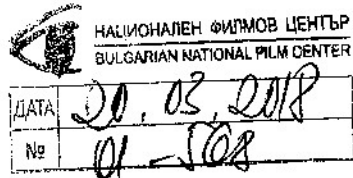 НАЦИОНАЛЕН ФИЛМОВ ЦЕНТЪР
BULGARIAN NATIONAL FILM CENTER
ДАТА 20.03.2018
№ 01-568